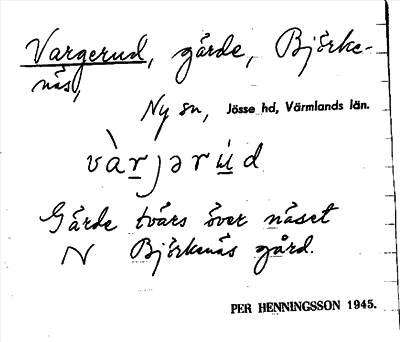 Vargerud, gärde, Björke-
näs,
Ny sn, Jösse hd, Värmlands län.
vàrjərúd
Gärde tvärs över näset
N Björkenäs gård.
PER HENNINGSSON 1945.